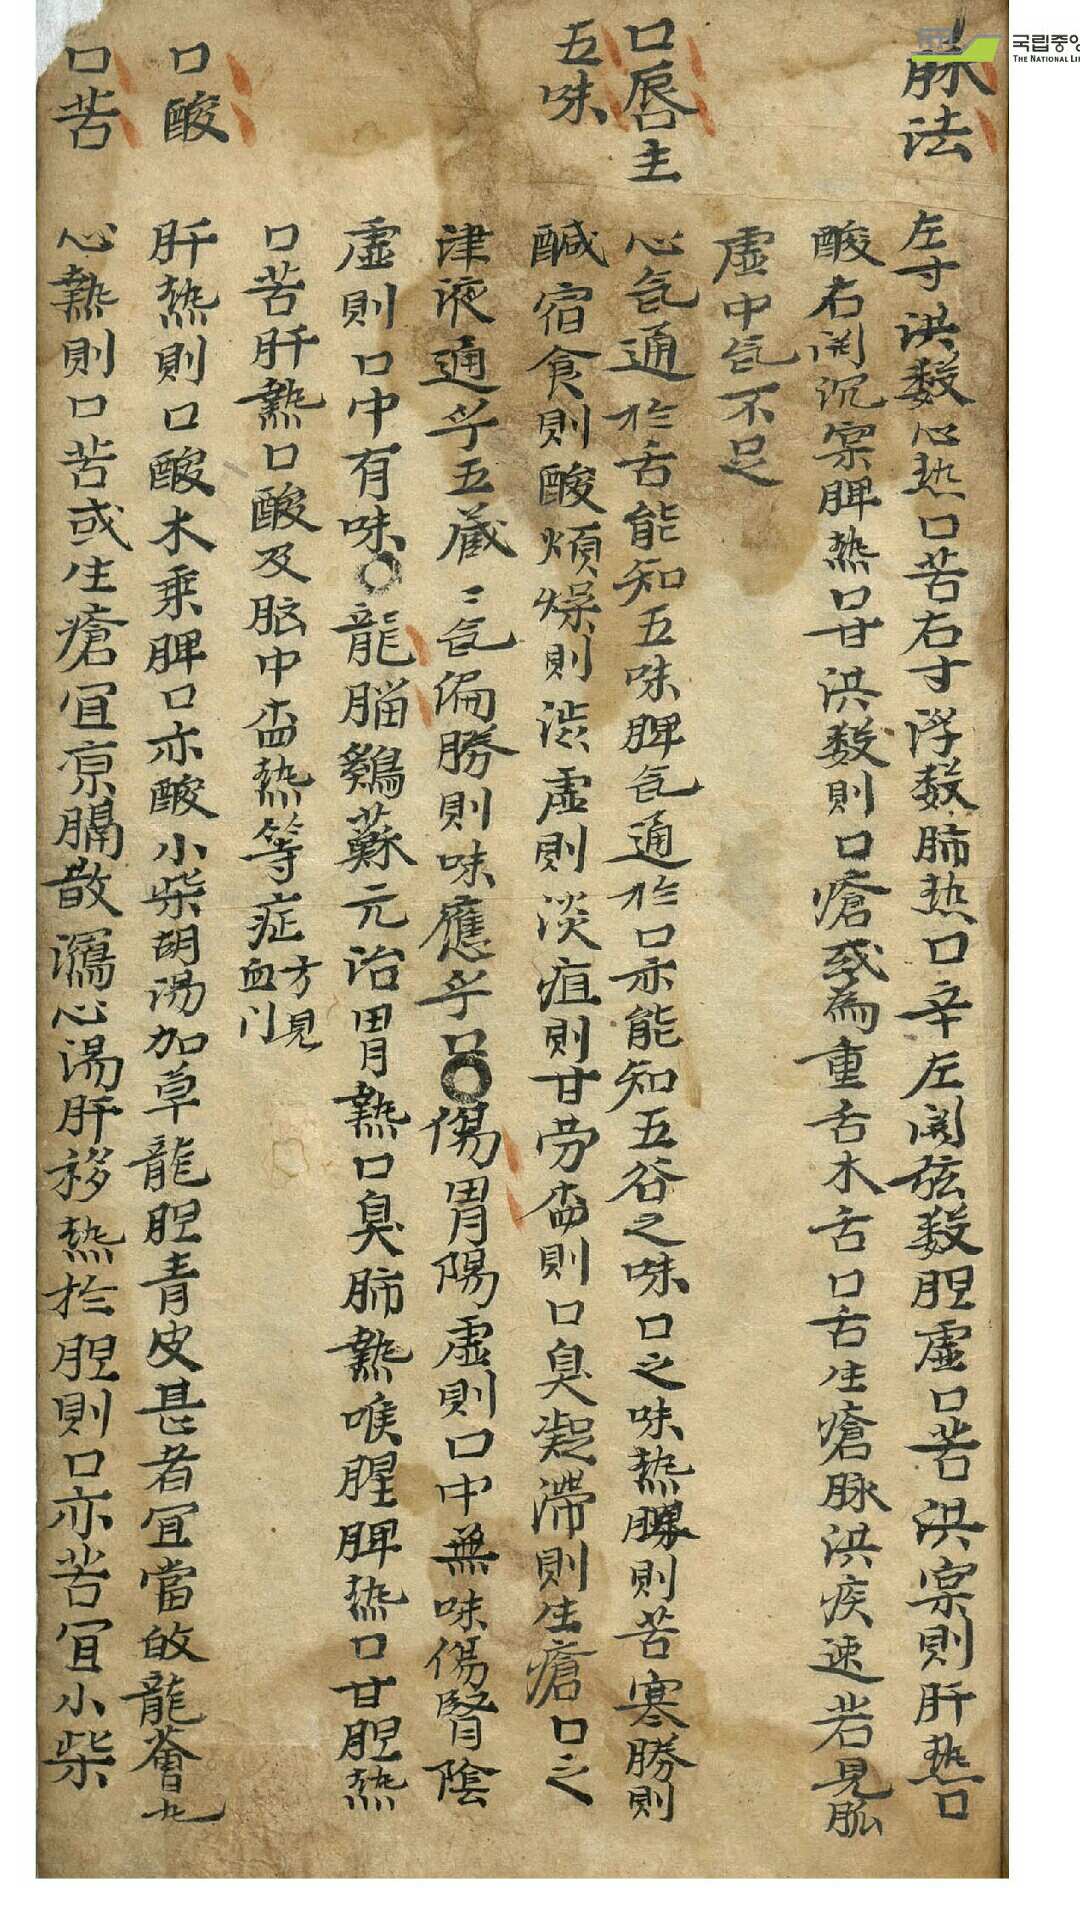 脉法 左寸洪数心热口苦右寸浮数肺热口辛左関弦数胆虚口苦洪実則肝热口
酸右関沉実脾热口甘洪数則口瘡或為重舌木舌口舌生瘡脉洪疾速若見脈
虚中気不足
口唇主 心気通於舌能知五味脾気通於口亦能知五谷之味口之味热勝則苦寒勝則
五味 醎宿食則酸煩燥則渋虚則淡疸則甘劳䘌則口臭凝滞則生瘡口之
津液通乎五藏〻気偏勝則味應乎口〇傷胃陽虚則口中無味傷腎陰
虚則口中有味〇龍脳鷄蘓元治胃熱口臭肺熱喉腥脾热口甘胆热
口苦肝熱口酸及脳中䘌热等症方見血门
口酸 肝热則口酸木乗脾口亦酸小柴胡湯加草龍胆青皮甚者宜當皈龍薈丸
口苦 心熱則口苦或生瘡宜凉膈散瀉心湯肝移热於胆則口亦苦宜小柴
국립중앙
THE NATIONAL LI